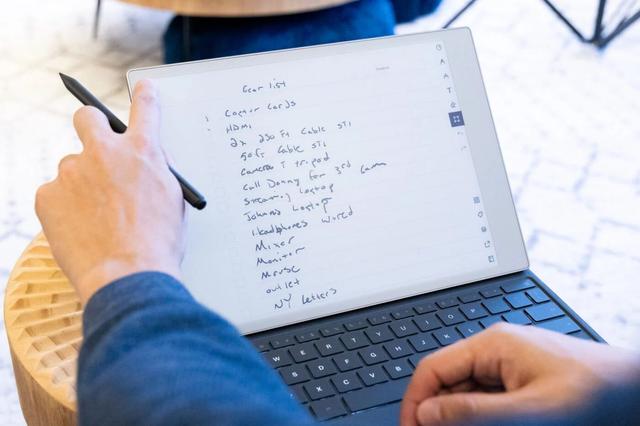 Gear list
Capture Cards
HDMI
2x 250 Ft Cable STI
50ft Cable STI
Camera T tripod
Call Donny for 3rd Cam
Streaming Laptop
Johns Laptop
Headphones wired
Mixer
Monitor
Mouse
outlet
NY letters
Q W E R T Y U I O P
A S D F G H J K L
Z X C V B N M